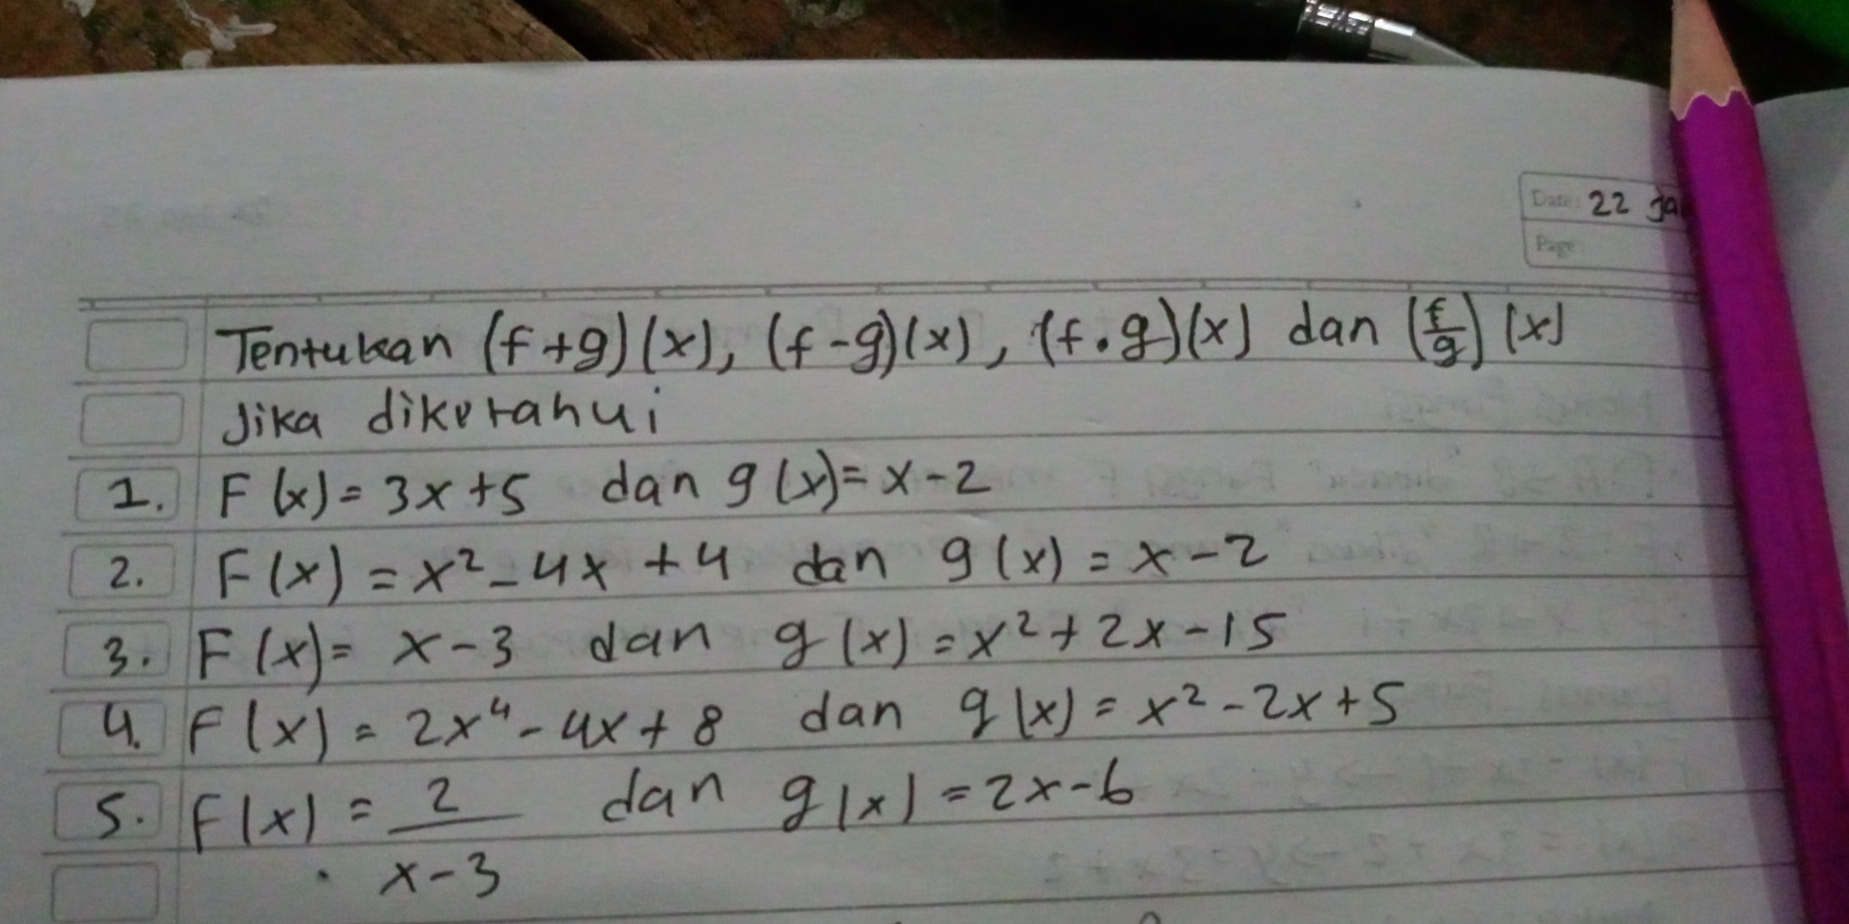 Date: 22 Ja
Page:
Tentukan (f+g)(x), (f-g)(x), (f.g)(x) dan (f/g)(x)
Jika diketahui
1. F(x) = 3x+5 dan g(x) = x-2
2. F(x) = x²-4x+4 dan g(x) = x-2
3. F(x) = x-3 dan g(x) = x²+2x-15
4. F(x) = 2x⁴-4x+8 dan g(x) = x²-2x+5
5. F(x) = 2/(x-3) dan g(x) = 2x-6